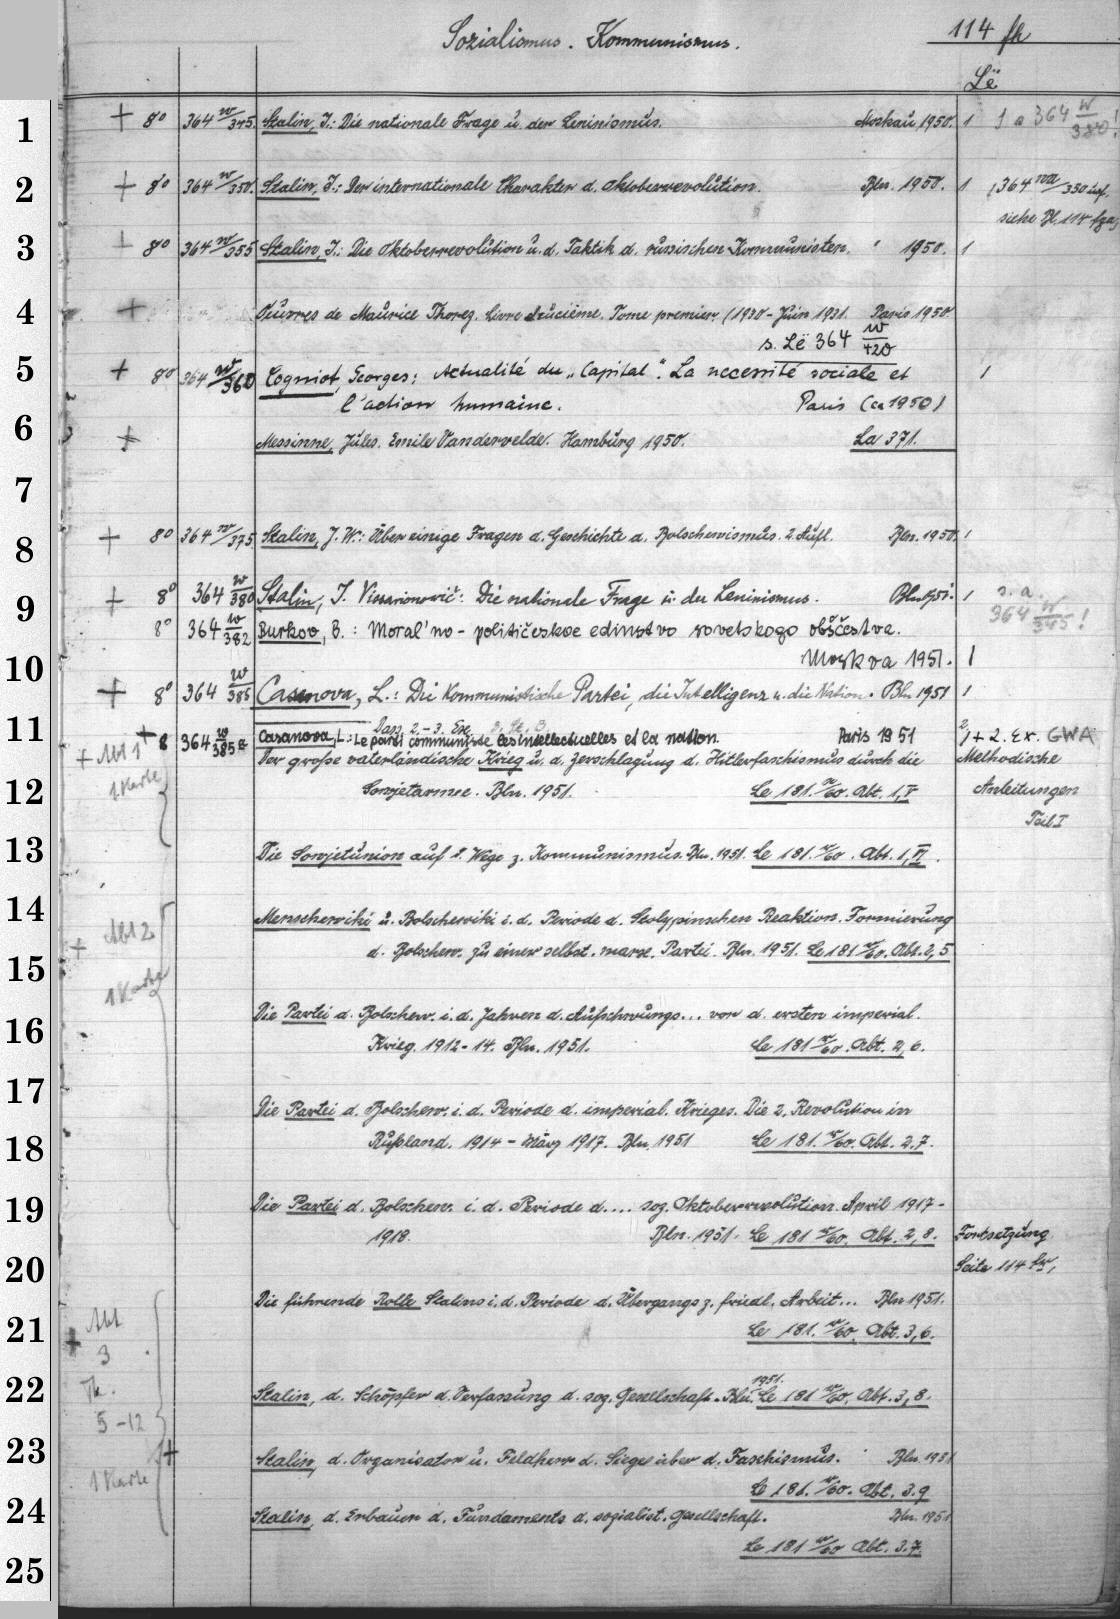 Sozialismus. Kommunismus.
114 fk
Lë
1 + 8° 364 w/345. Stalin, J.: Die nationale Frage u. der Leninismus. Moskau 1950. 1 s. a. 364 w/380!
2 + 8° 364 w/350. Stalin, J.: Der internationale Charakter d. Oktoberrevolution. Bln. 1950. 1 364 350
siehe Bl. 114
3 + 8° 364 w/355 Stalin, J.: Die Oktoberrevolution u. d. Taktik d. russischen Kommunisten. " 1950. 1
4 + Œuvres de Maurice Thorez. Livre deuxième. Tome premier. (1930 - Juin 1931. Paris 1950
s. Lë 364 w/420
5 + 8° 364 w/360 Cogniot, Georges: Actualité du „Capital". La necessité sociale et 1
l'action humaine. Paris (ca 1950)
6 + Messinne, Jules. Emile Vandervelde. Hamburg 1950. La 371.
7
8 + 8° 364 w/375. Stalin, J. W.: Über einige Fragen d. Geschichte d. Bolschewismus. 2. Aufl. Bln. 1950. 1
9 + 8° 364 w/380 Stalin, J. Vissarionovič: Die nationale Frage u. der Leninismus. Bln 1951. 1 s. a.
364 w/345!
8° 364 w/382 Burkov, B.: Moral'no-političeskoe edinstvo sovetskogo obščestva.
10 Moskva 1951. 1
+ 8° 364 w/385 Casanova, L.: Die Kommunistische Partei, die Intelligenz u. die Nation. Bln 1951 1
Dass. 2.-3. Ex.
11 + 8 364 w/385a Casanova, L.: Le parti communiste les intellectuelles et la nation. Paris 1951 1 + 2. Ex. GWA
+ Abt 1 Der große vaterländische Krieg u. d. Zerschlagung d. Hitlerfaschismus durch die Methodische
1 Karte
12 Sowjetarmee. Bln. 1951. Le 181. w/60. Abt. 1, V Anleitungen
Teil I
13 Die Sowjetunion auf d. Wege z. Kommunismus. Bln. 1951. Le 181. w/60. Abt. 1, VI.
14 Menschewiki u. Bolschewiki i. d. Periode d. Stolypinschen Reaktion. Formierung
+ Abt 2
15 d. Bolschew. zu einer selbst. marx. Partei. Bln. 1951. Le 181 w/60. Abt. 2, 5
1 Karte
Die Partei d. Bolschew. i. d. Jahren d. Aufschwungs... vor d. ersten imperial.
16 Krieg. 1912-14. Bln. 1951. Le 181 w/60. Abt. 2, 6.
17 Die Partei d. Bolschew. i. d. Periode d. imperial. Krieges. Die 2. Revolution in
18 Rußland. 1914 - März 1917. Bln. 1951 Le 181. w/60. Abt. 2.7.
19 Die Partei d. Bolschew. i. d. Periode d.... soz. Oktoberrevolution. April 1917-
1918. Bln. 1951. Le 181 w/60. Abt. 2, 8. Fortsetzung
20 Seite 114
Die führende Rolle Stalins i. d. Periode d. Übergangs z. friedl. Arbeit... Bln 1951.
Abt
21 + 3 Le 181. w/60. Abt. 3, 6.
1951.
22 Stalin, d. Schöpfer d. Verfassung d. soz. Gesellschaft. Bln. Le 181 w/60. Abt. 3, 8.
5-12
23 + Stalin, d. Organisator u. Feldherr d. Sieges über d. Faschismus. Bln. 1951
1 Karte Le 181. w/60. Abt. 3.9
24 Stalin, d. Erbauer d. Fundaments d. sozialist. Gesellschaft. Bln. 1951
Le 181 w/60 Abt. 3.7.
25